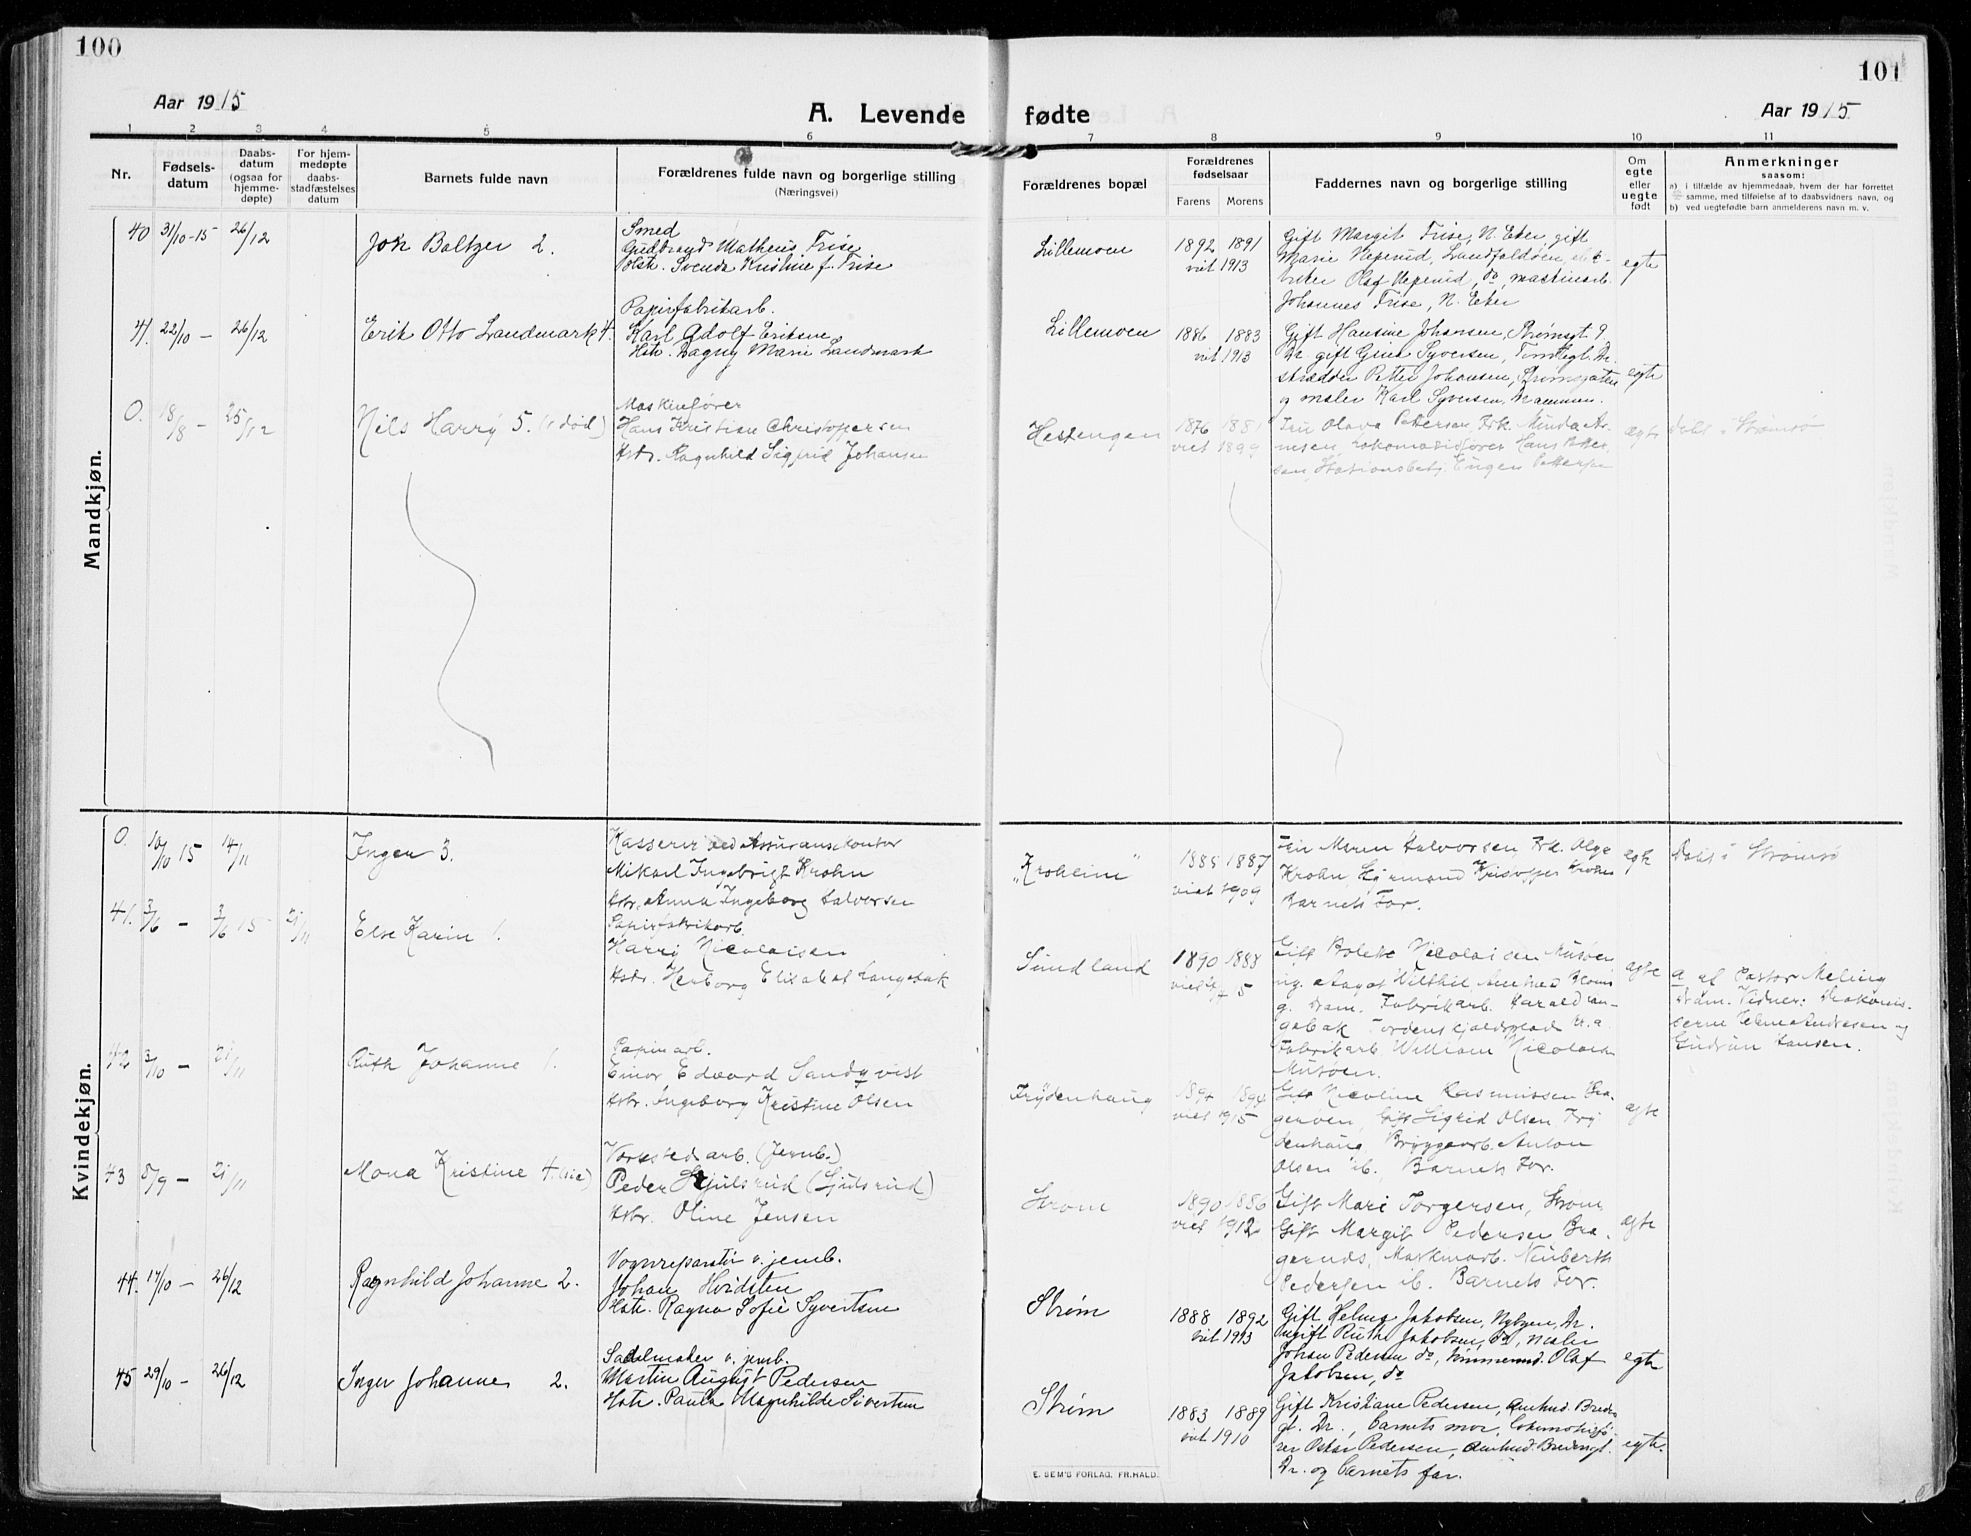 100
101
Aar 1915
A. Levende fødte
Aar 1915
1 2 3 4 5 6 7 8 9 10 11
Nr.
Fødsels-
datum
Daabs-
datum
(ogsaa for
hjemme-
døpte)
For hjem-
medøpte
daabs-
stadfæstelses
datum
Barnets fulde navn
Forældrenes fulde navn og borgerlige stilling
(Næringsvei)
Forældrenes bopæl
Forældrenes
fødselsaar
Farens Morens
Faddernes navn og borgerlige stilling
Om
egte
eller
uegte
født
Anmerkninger
saasom:
a) i tilfælde av hjemmedaab, hvem der har forrettet
samme, med tilføielse af to daabsvidners navn, og
b) ved uegtefødte barn anmelderens navn m. v.
Mandkjøn.
40 31/10-15 26/12
John Baltzer 2.
Smed
Gudbrand Mathæus Frise
Hstr. Svenda Kristine f. Frise
Lillemoen
1892 1891
viet 1913
Gift Margit Frise, N. Eker, gift
Marie Neperud, Landfaldøen,
Olaf Neperud, do, maskinarb.
Johannes Frise, N. Eker
egte
41. 22/10 – 26/12
Erik Otto Landmark 4.
Papirfabrikarb.
Karl Adolf Eriksen
Hstr. Dagny Marie Landmark
Lillemoen
1886 1883
viet 1913
Gift Hansine Johansen, Strømsgt 9
Dr. gift Gina Syversen, Tomtegt. Dr.
skrædder Petter Johansen, Strømsgaten
og maler Karl Syversen, Drammen.
egte
0. 18/8 – 25/12
Nils Harry 5. (1 død)
Maskinfører
Hans Kristian Christophersen
Hstr. Ragnhild Sigfrid Johansen
Hestengen
1876 1881
viet 1899
Fru Olava Pettersen, Frk. Minda
Lokomotivfører Hans Petter-
sen, Stationsbetj. Eugen Pettersen
ægte
Døbt i Strømsø
Kvindekjøn.
0. 10/10 15 14/11
Inger 3.
Kasserer ved Assuranskontor
Mikael Ingebrigt Krohn
Hstr. Anna Ingeborg Halvorsen
"Kroheim"
1885 1887
viet 1909
Fru Maren Halvorsen, Frk. Olga
Krohn, Kristoffer Krohn
Barnets Far.
egte
Døbt i Strømsø
41. 3/6 – 3/6 15 21/11
Else Karin 1.
Papirfabrikarb.
Harry Nicolaisen
Hstr. Herborg Elisabet Langebak
Sundland
1890 1888
Gift Bolette Nicolaisen
g. Dram. Fabrikarb. Harald Lan-
gebak Tordenskjoldsgad
Fabrikarb William Nicolaisen
ægte
a af Pastor Meling
Dram. Vidner: Diakonis-
serne Helene Andresen og
Gudrun Hansen.
42 3/10 – 21/11
Ruth Johanne 1.
Papirarb.
Einar Edvard Sandqvist
Hstr. Ingeborg Kristine Olsen
Frydenhaug
1894
viet 1915
Gift Nicoline Rasmussen Bra-
gerøen, Gift Sigrid Olsen Fry
denhaug Bryggearb. Anton
Olsen ib. Barnets Far.
ægte
43 8/9 – 21/11
Mona Kristine 4.
Verkstedarb. (Jernb.)
Peder Skjulsrud (Sjulsrud)
Hstr. Oline Jensen
Strøm
1890 1886
viet 1912
Gift Mari Torgersen, Strøm
Gift Margit Pedersen Bra-
gernes, Maskinarb. Neuberth
Pedersen ib. Barnets Far.
ægte
44. 17/10 – 26/12
Ragnhild Johanne 2.
Vognreparatør v. jernb.
Johan Hvidsten
Hstr. Ragna Sofie Syvertsen
Strøm
1888 1892
viet 1913
Gift Helma Jakobsen, Nybyen, Dr.
ugift Ruth Jakobsen, do, maler
Johan Pedersen do, tømmermd. Olaf
Jakobsen, do
egte
45 29/10 – 26/12
Inger Johanne 2.
Sadelmaker v. jernb.
Martin August Pedersen
Hstr. Paula Magnhilde Sivertsen
Strøm
1883 1889
viet 1910
Gift Kristiane Pedersen, Amtmd. Brede-
gt. Dr., barnets mor, Lokomotivfø-
rer Oskar Pedersen, Amtmd. Bredesgt.
Dr. og barnets far.
egte.
E. SEM'S FORLAG. FR.HALD.